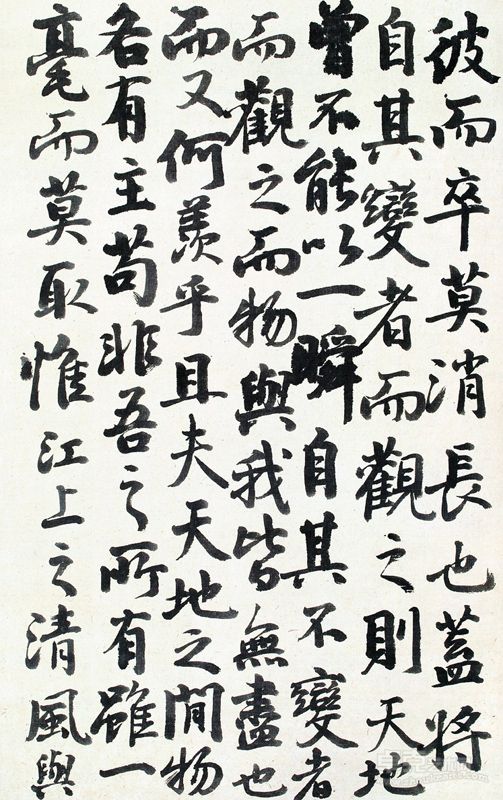 彼而卒莫消長也蓋將
自其變者而觀之則天地
曾不能以一瞬自其不變者
而觀之而物與我皆無盡也
而又何羨乎且夫天地之間物
各有主苟非吾之所有雖一
毫而莫取惟江上之清風與